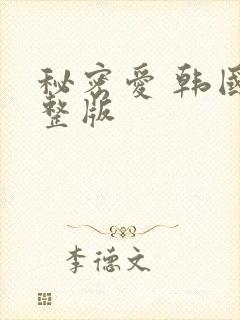 秘密爱 韩國
整版
李德文